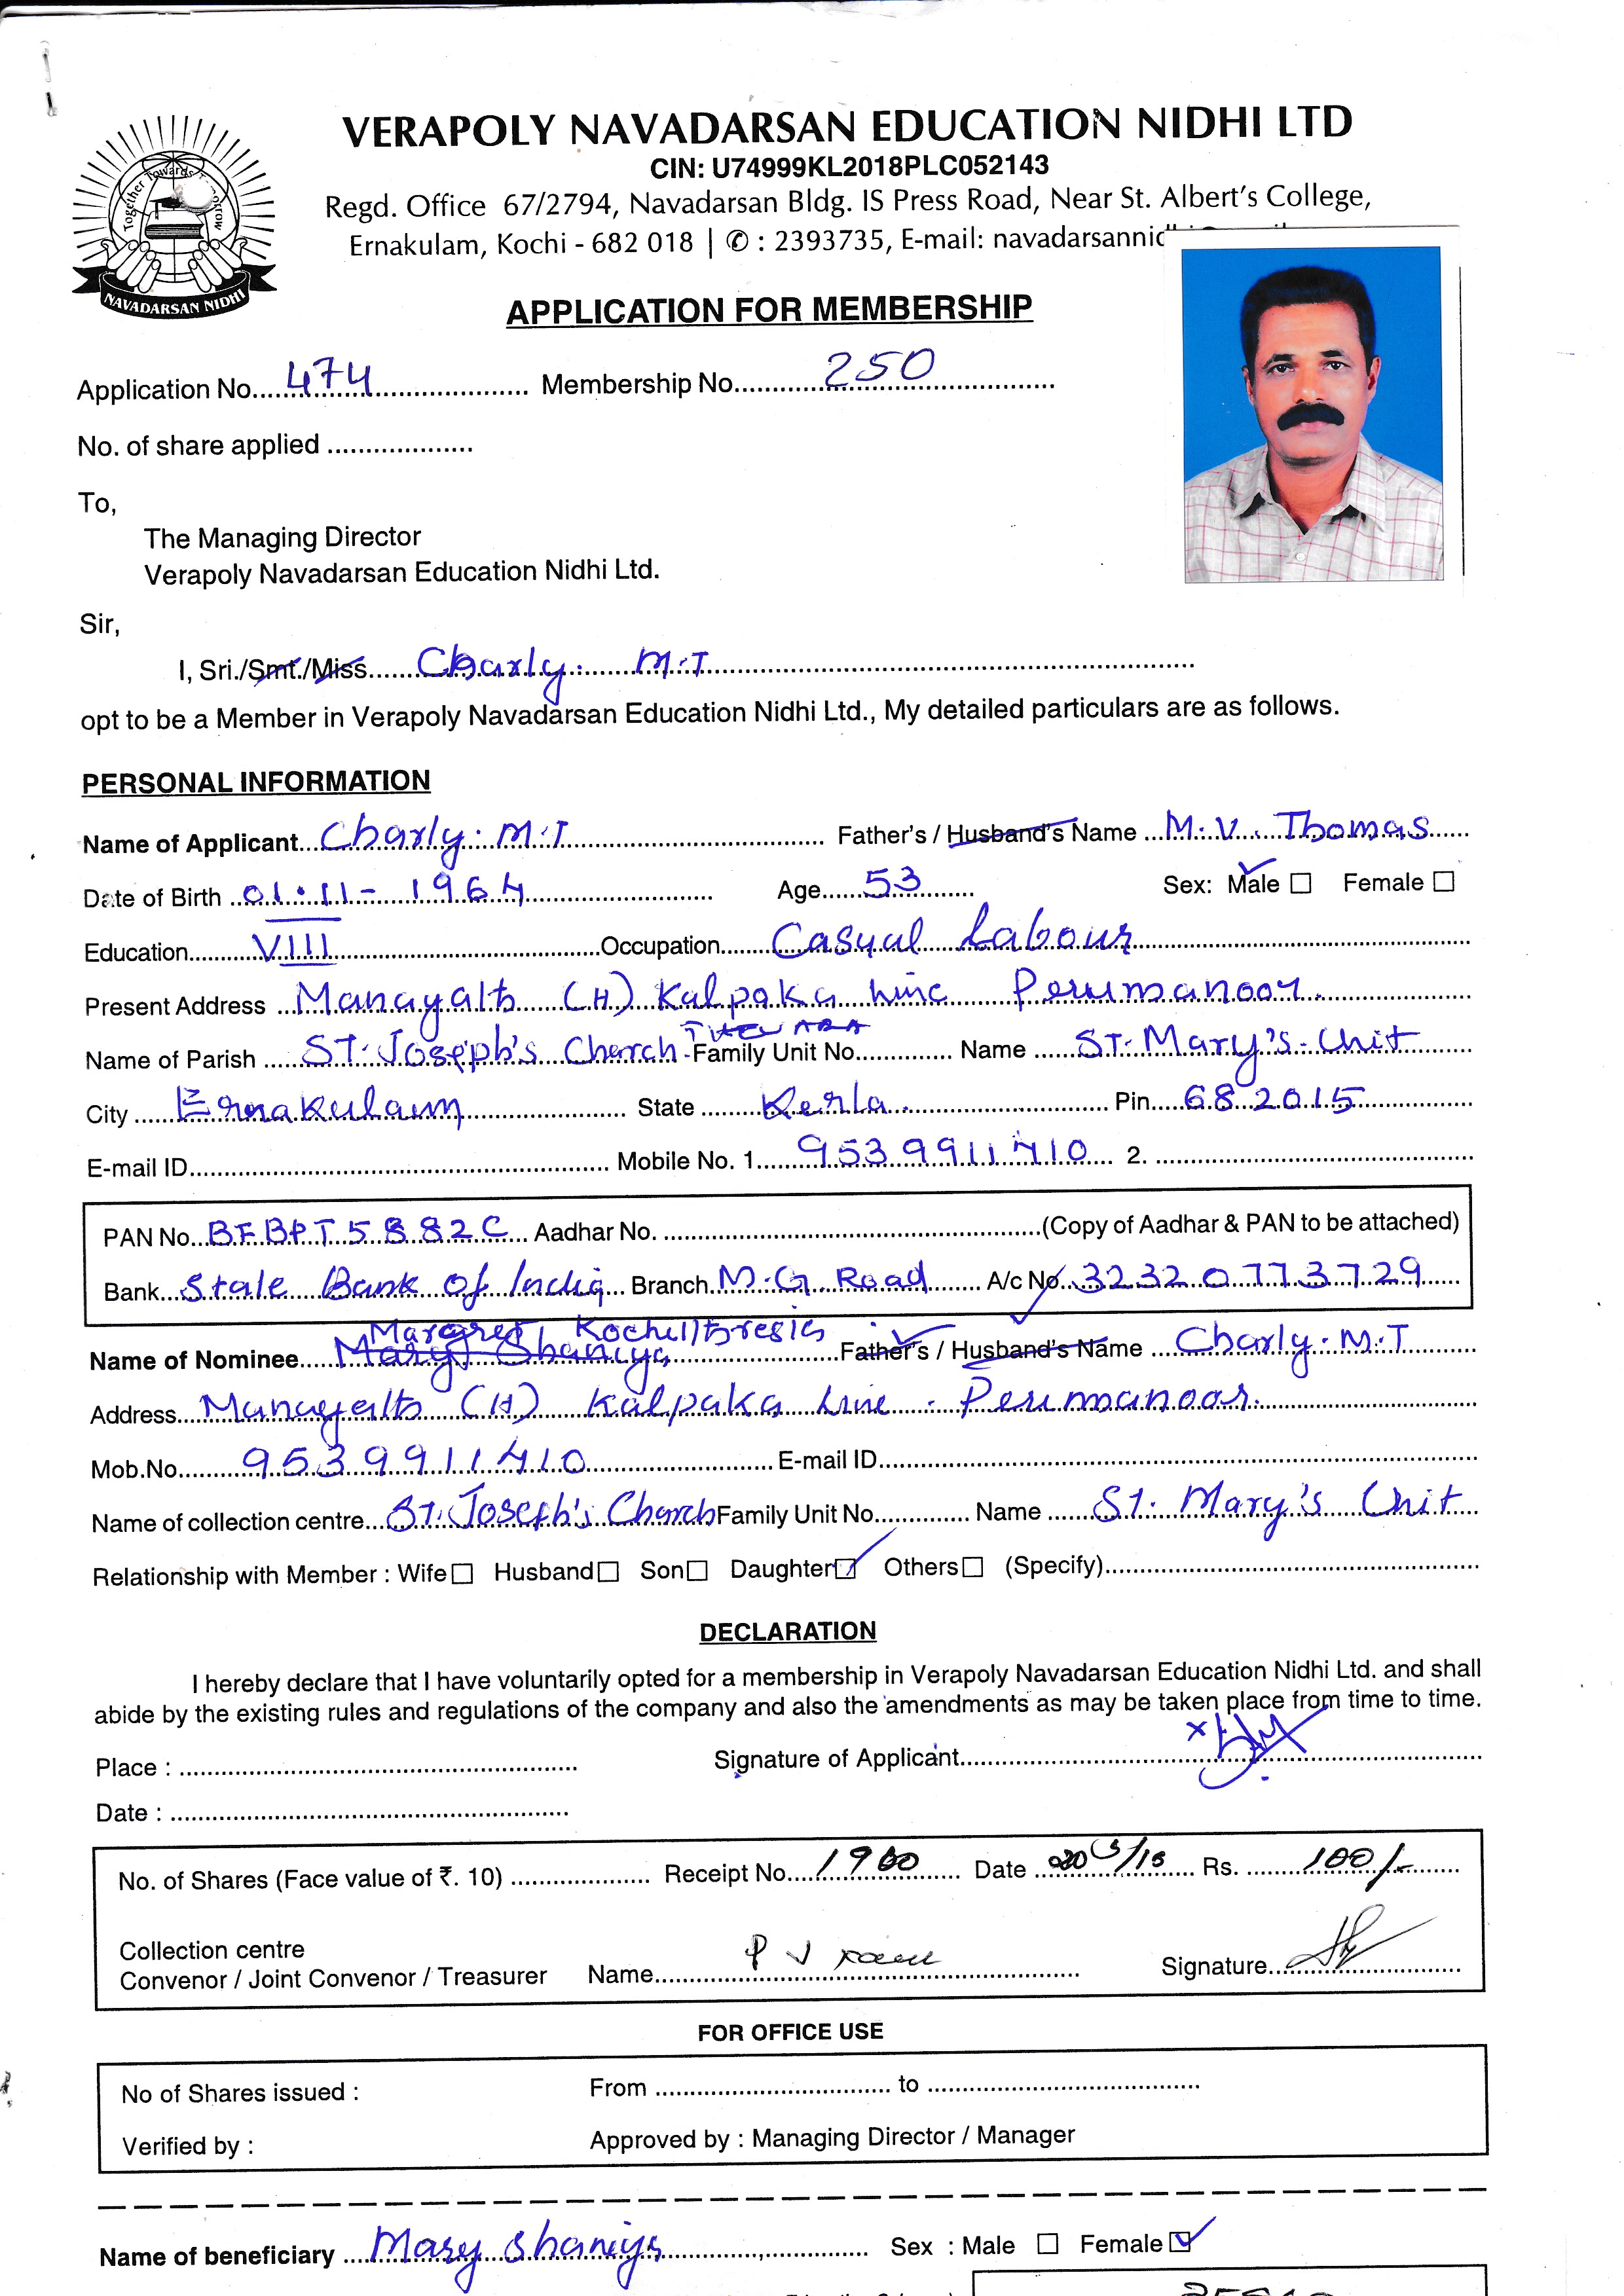 VERAPOLY NAVADARSAN EDUCATION NIDHI LTD
CIN: U74999KL2018PLC052143
Regd. Office 67/2794, Navadarsan Bldg. IS Press Road, Near St. Albert's College,
Ernakulam, Kochi - 682 018 | ✆ : 2393735, E-mail: navadarsannid
Together Towards
NAVADARSAN NIDHI
APPLICATION FOR MEMBERSHIP
Application No. 474 Membership No. 250
No. of share applied
To,
The Managing Director
Verapoly Navadarsan Education Nidhi Ltd.
Sir,
I, Sri./Smt./Miss Charly. M.T
opt to be a Member in Verapoly Navadarsan Education Nidhi Ltd., My detailed particulars are as follows.
PERSONAL INFORMATION
Name of Applicant Charly. M.T Father's / Husband's Name M.V. Thomas
Date of Birth 01.11-1964 Age 53 Sex: Male ☐ Female ☐
Education VIII Occupation Casual Labour
Present Address (H) Kalpaka Line Perumanoor.
Name of Parish ST. Joseph's Church THEVARA Family Unit No. Name ST. Mary's. Unit
City Ernakulam State Kerla. Pin 682015
E-mail ID Mobile No. 1. 9539911410 2.
PAN No. BFBPT5882C Aadhar No. (Copy of Aadhar & PAN to be attached)
Bank State Bank of India Branch M.G. Road A/c No. 32320773729
Name of Nominee Mary Shaniya Margret Kochuthresia Father's / Husband's Name Charly. M.T
Address (H) Kalpaka Line. Perumanoor.
Mob.No. 9539911410 E-mail ID
Name of collection centre ST. Joseph's Church Family Unit No. Name ST. Mary's Unit
Relationship with Member : Wife ☐ Husband ☐ Son ☐ Daughter ☑ Others ☐ (Specify)
DECLARATION
I hereby declare that I have voluntarily opted for a membership in Verapoly Navadarsan Education Nidhi Ltd. and shall
abide by the existing rules and regulations of the company and also the amendments as may be taken place from time to time.
Place : Signature of Applicant
Date :
No. of Shares (Face value of ₹. 10) Receipt No. 1900 Date Rs. 100/-
Collection centre
Convenor / Joint Convenor / Treasurer Name P J Signature
FOR OFFICE USE
No of Shares issued : From to
Verified by : Approved by : Managing Director / Manager
Name of beneficiary Mary Shaniya Sex : Male ☐ Female ☑